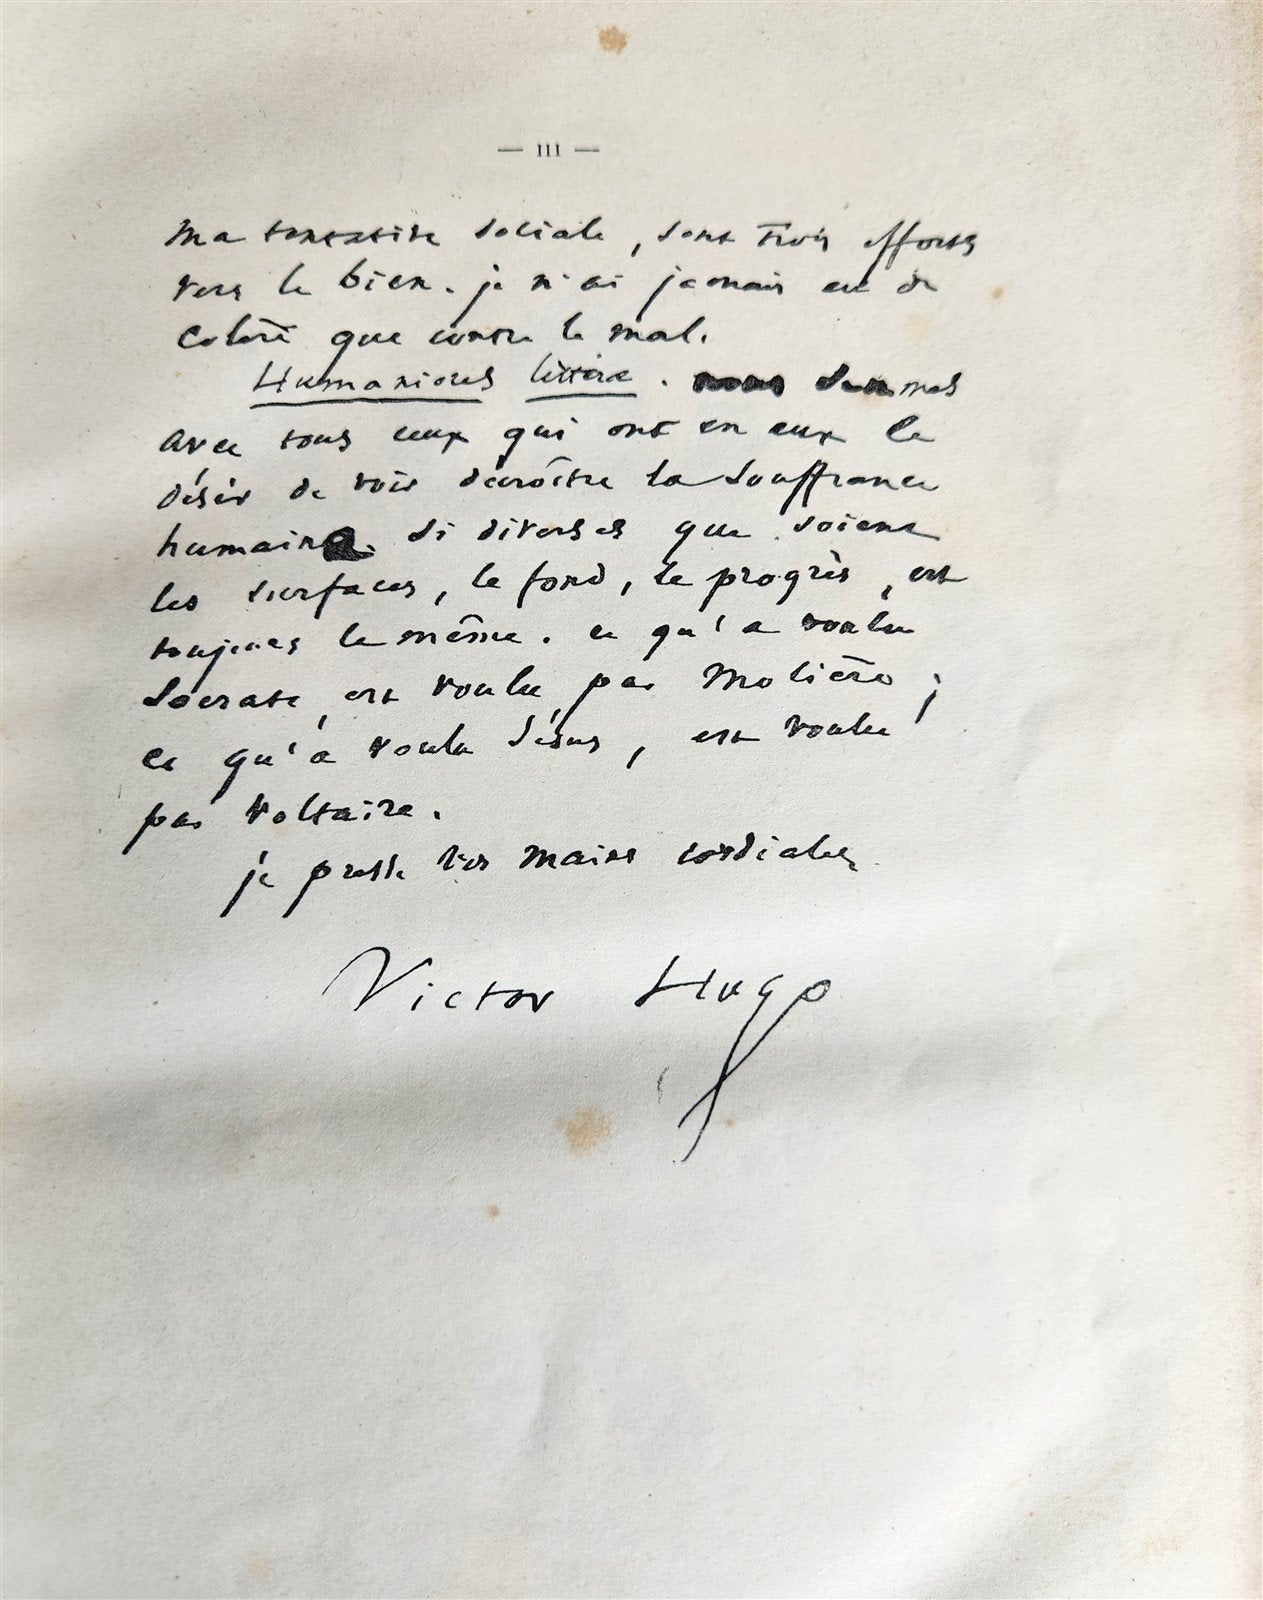 — III —
ma tentative sociale, sont trois efforts
vers le bien. je n'ai jamais eu de
colère que contre le mal.
Humaniores litteræ. nous sommes
avec tous ceux qui ont en eux le
désir de voir décroître la souffrance
humaine. si diverses que soient
les surfaces, le fond, le progrès, est
toujours le même. ce qu'a voulu
Socrate, est voulu par Molière ;
ce qu'a voulu Jésus, est voulu
par Voltaire.
je presse vos mains cordiales
Victor Hugo